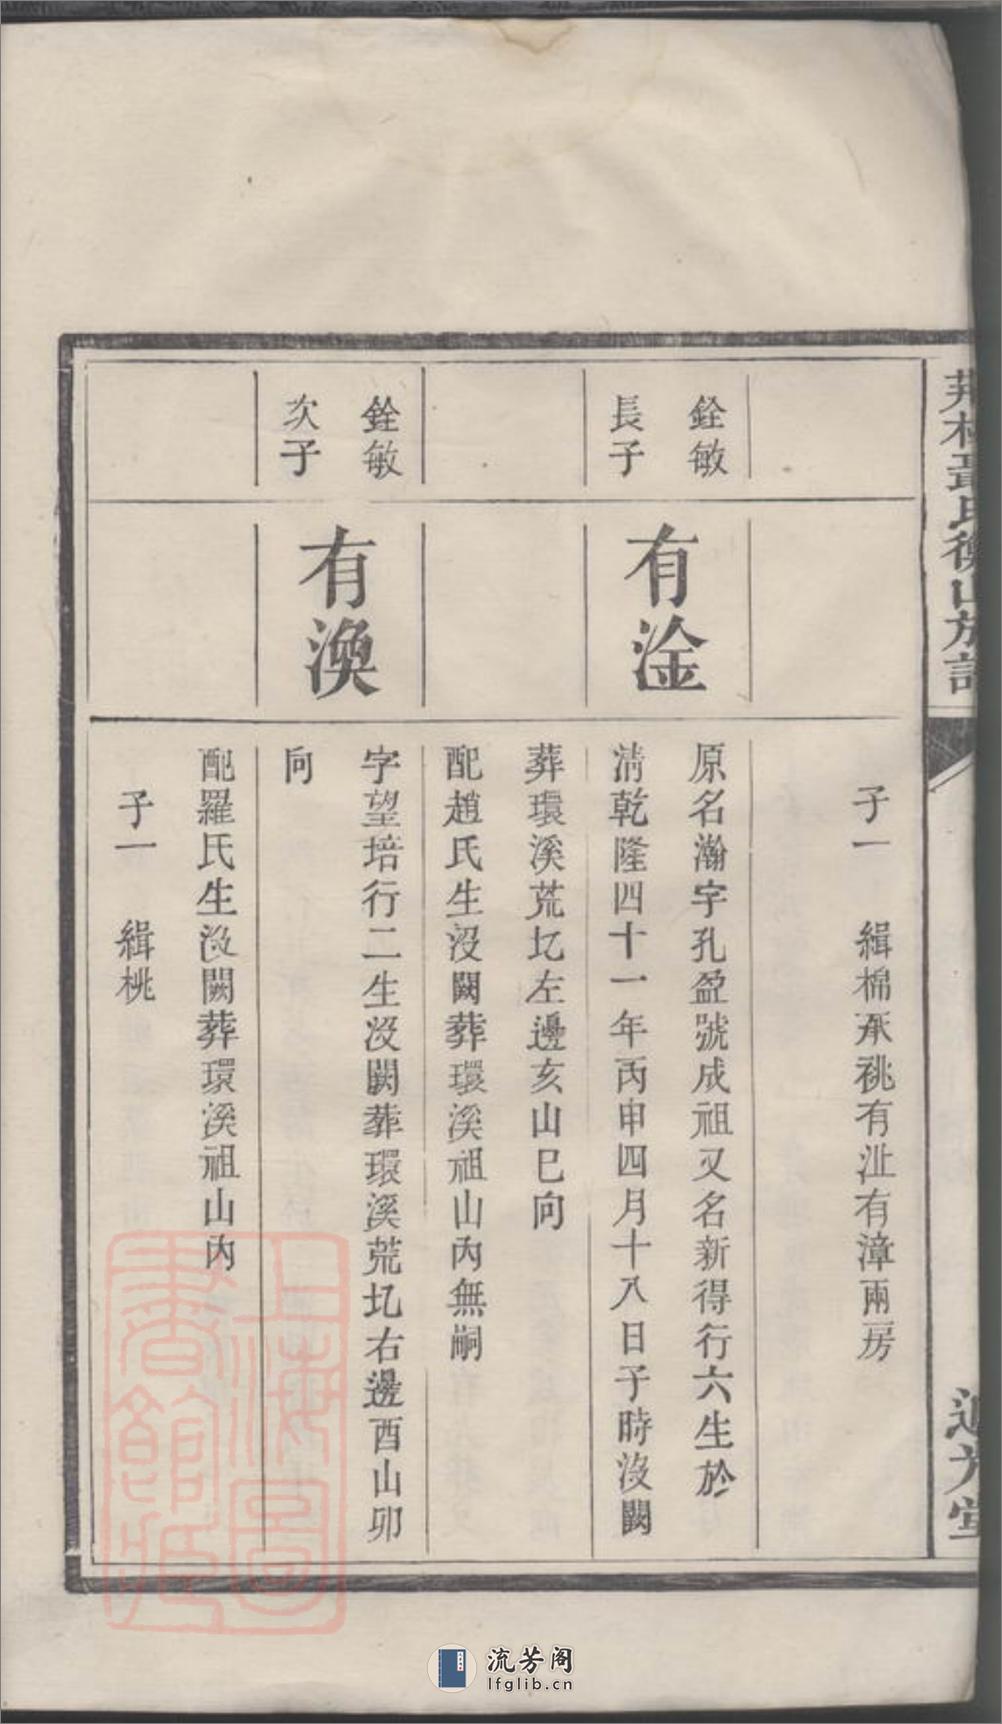 子一 緝棉承祧有沚有漳兩房
銓敏
長子
有淦
原名瀚字孔盈號成祖又名新得行六生於
清乾隆四十一年丙申四月十八日子時沒闕
葬環溪荒圠左邊亥山巳向
配趙氏生沒闕葬環溪祖山內無嗣
銓敏
次子
有渙
字望培行二生沒闕葬環溪荒圠右邊酉山卯
向
配羅氏生沒闕葬環溪祖山內
子一 緝桃
上海圖
書館藏
流芳阁
lfglib.cn